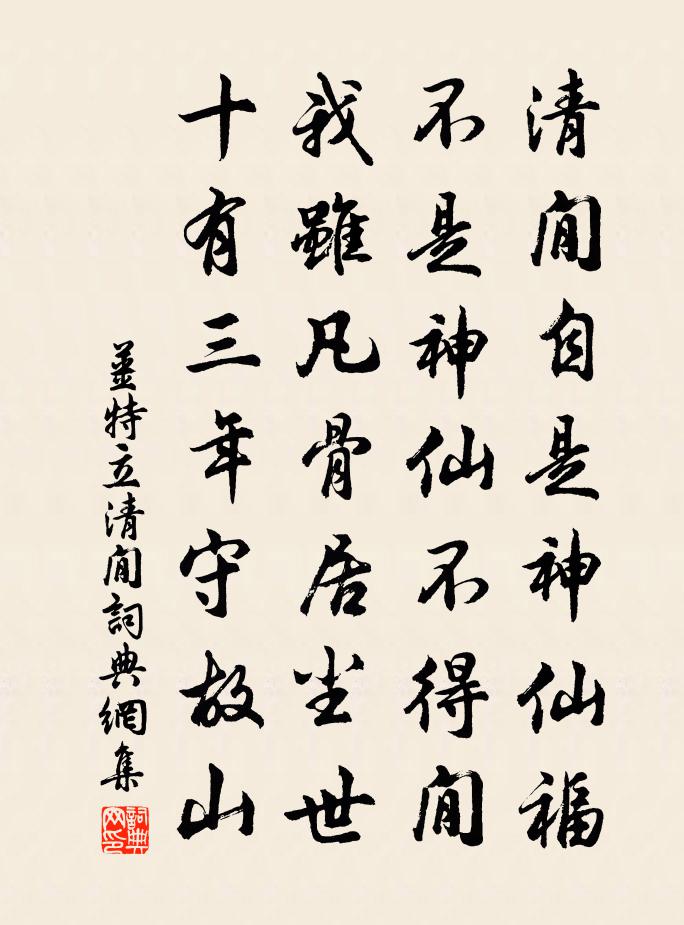 清閒自是神仙福
不是神仙不得閒
我雖凡骨居尘世
十有三年守故山
姜特立清閒詞典網集
詞典網印